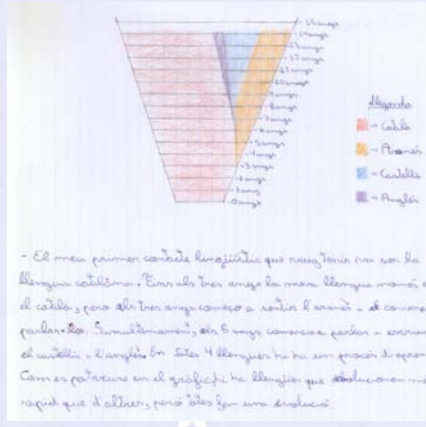 15 anys
14 anys
13 anys
12 anys
11 anys
10 anys
9 anys
8 anys
7 anys
6 anys
5 anys
4 anys
3 anys
2 anys
1 any
0 anys
Llegenda
→ Català
→ Aranés
→ Castellà
→ Anglés
- El meu primer contacte lingüístic que vaig tenir va ser la
llengua catalana. Fins als tres anys la meva llengua només
el català, però als tres anys començo a sentir l'aranés i començo
parlar-lo. Simultàneament, als 6 anys començo a parlar i escriure
el castellà i l'anglés. En totes 4 llengües hi ha un procés d'
Com es pot veure en el gràfic, hi ha llengües que evolucionen més
ràpid que d'altres, però totes fan una evolució.